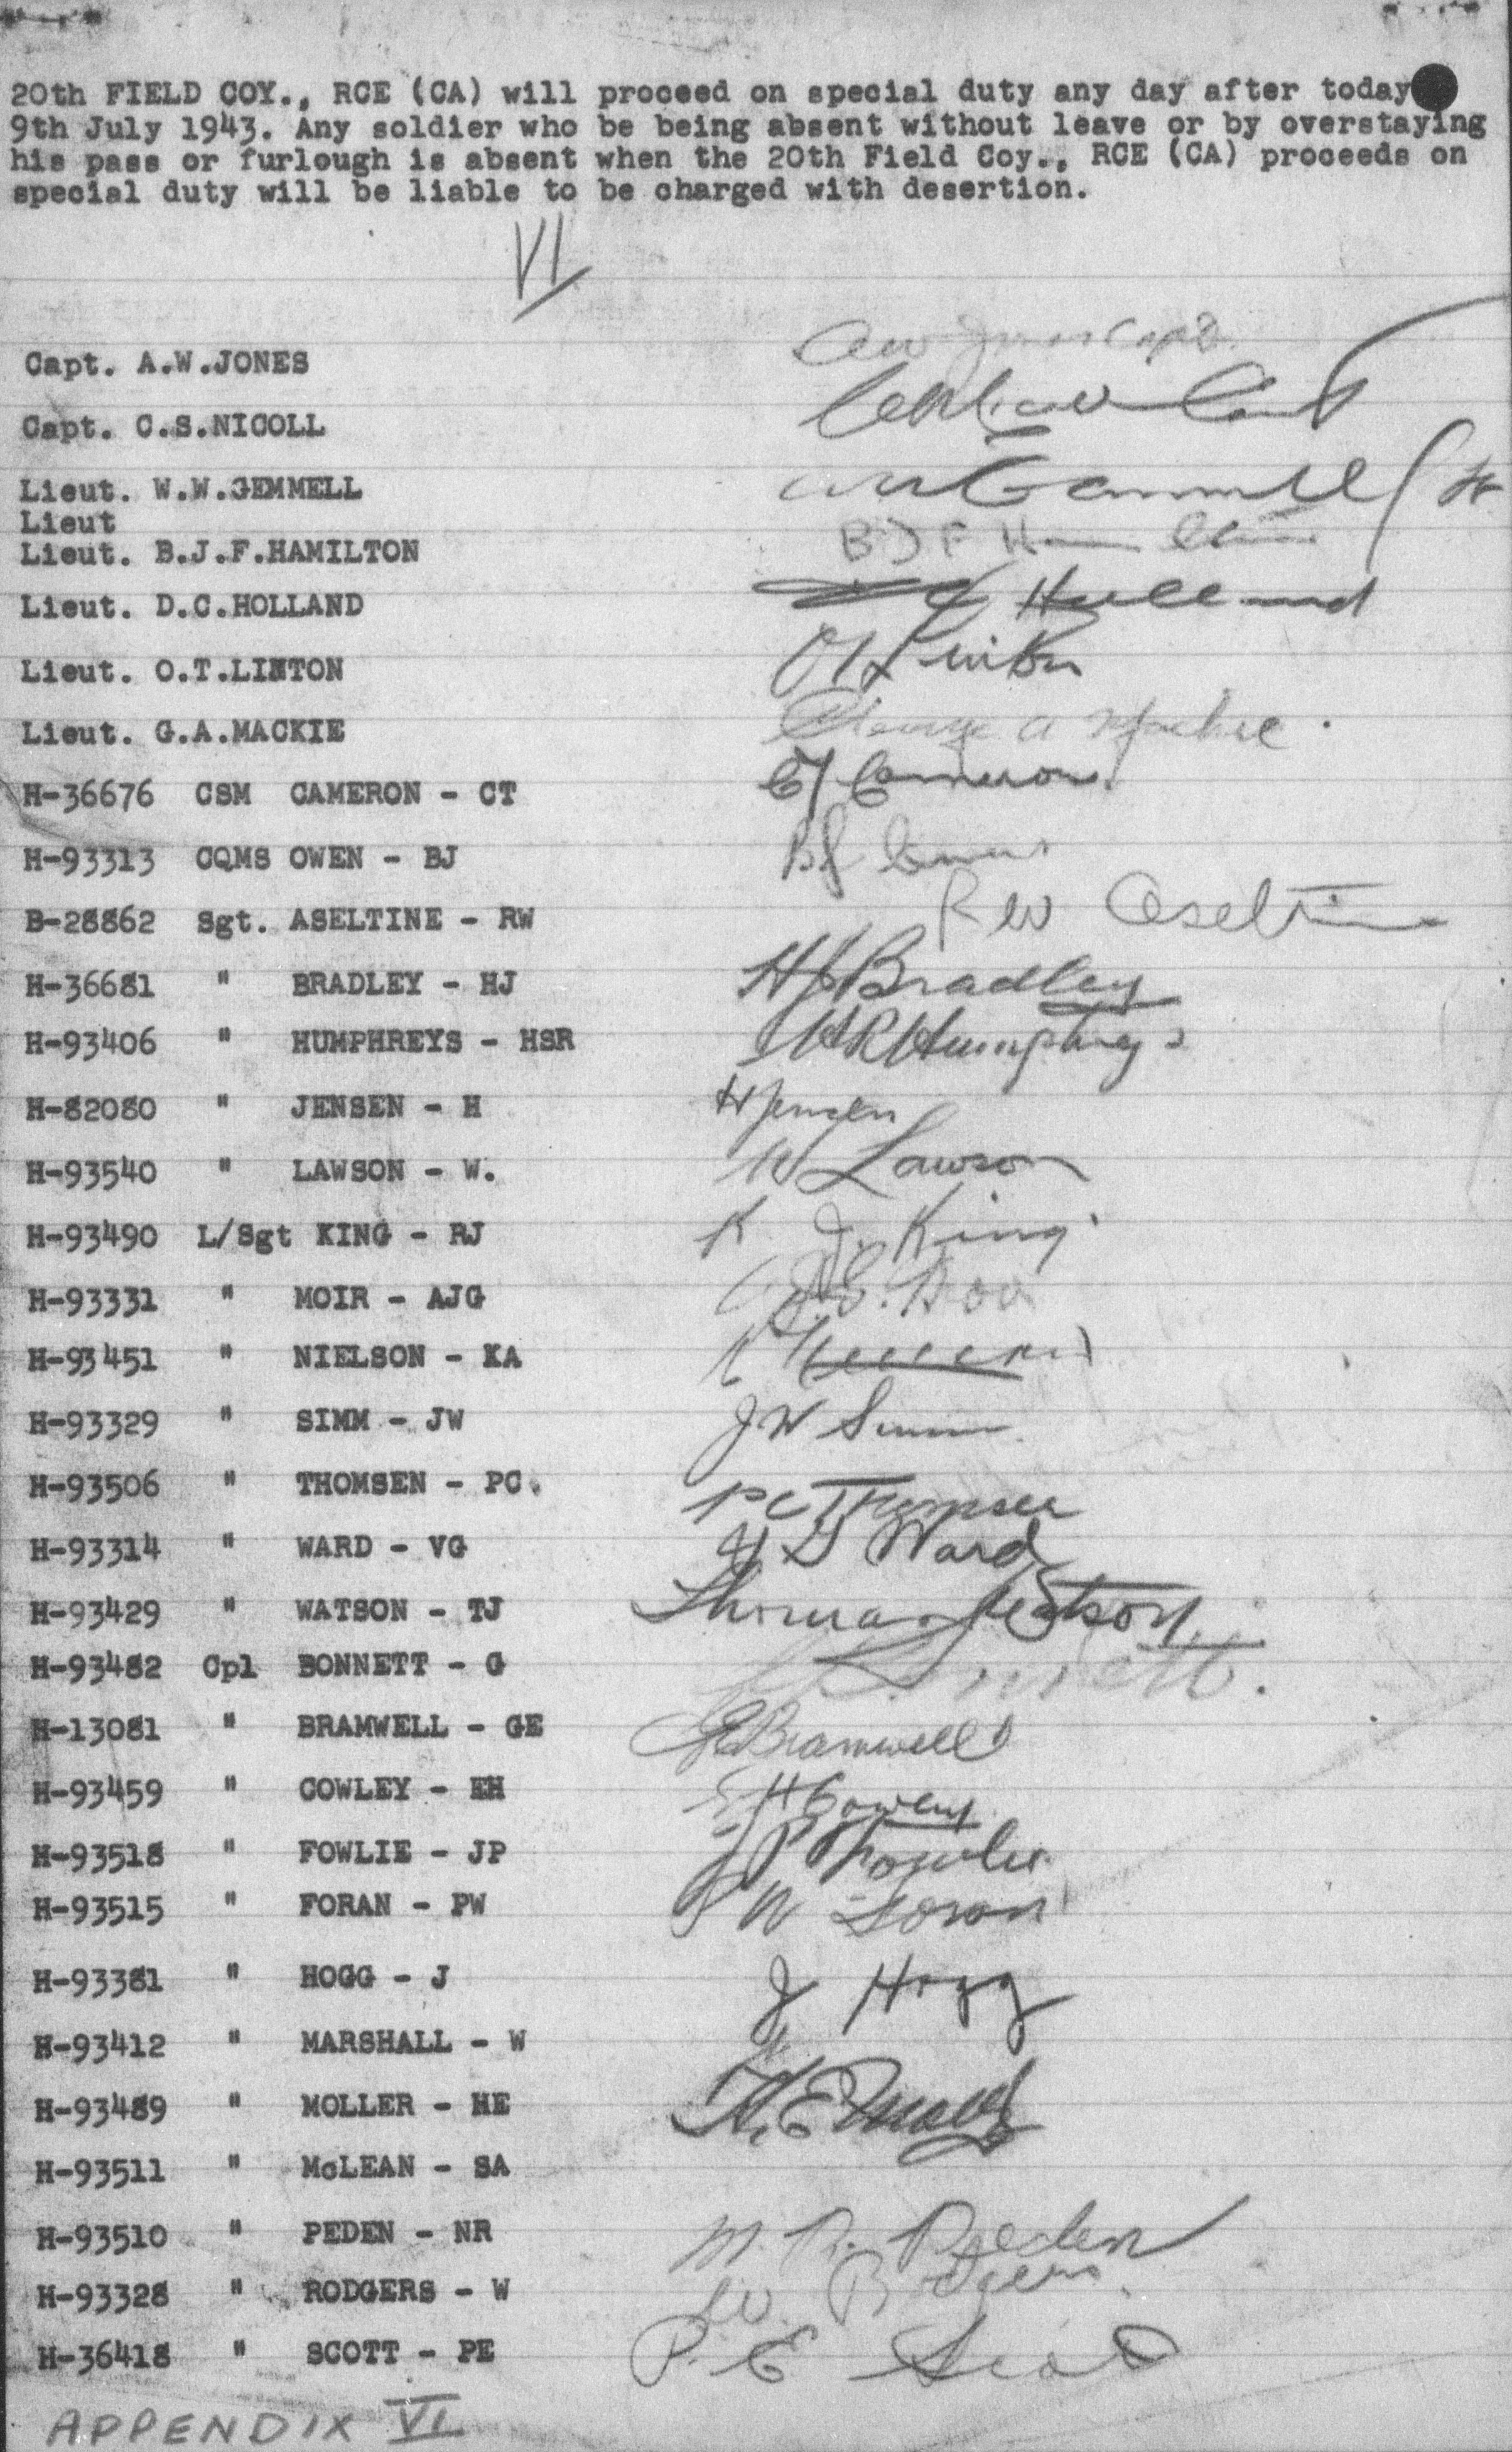 20th FIELD COY., RCE (CA) will proceed on special duty any day after today
9th July 1943. Any soldier who be being absent without leave or by overstaying
his pass or furlough is absent when the 20th Field Coy., RCE (CA) proceeds on
special duty will be liable to be charged with desertion.
VI
Capt. A.W.JONES AW Jones Capt.
Capt. C.S.NICOLL
Lieut. W.W.GEMMELL WW Gemmell Lt
Lieut
Lieut. B.J.F.HAMILTON BJF Hamilton
Lieut. D.C.HOLLAND Holland
Lieut. O.T.LINTON OT Linton
Lieut. G.A.MACKIE George A Mackie.
H-36676 CSM CAMERON - CT CT Cameron.
H-93313 CQMS OWEN - BJ BJ Owen
B-28862 Sgt. ASELTINE - RW RW Aseltine
H-36681 " BRADLEY - HJ HJ Bradley
H-93406 " HUMPHREYS - HSR Humphreys
H-82080 " JENSEN - H H Jensen
H-93540 " LAWSON - W. W Lawson
H-93490 L/Sgt KING - RJ R J. King
H-93331 " MOIR - AJG
H-93451 " NIELSON - KA
H-93329 " SIMM - JW JW Simm
H-93506 " THOMSEN - PC. PC Thomsen
H-93314 " WARD - VG VG Ward
H-93429 " WATSON - TJ Thomas J Watson
H-93482 Cpl BONNETT - G Bonnett.
H-13081 " BRAMWELL - GE GE Bramwell
H-93459 " COWLEY - EH EH Cowley
H-93518 " FOWLIE - JP JP Fowlie
H-93515 " FORAN - PW PW Foran
H-93381 " HOGG - J J Hogg
H-93412 " MARSHALL - W
H-93489 " MOLLER - HE H.E. Moller
H-93511 " McLEAN - SA
H-93510 " PEDEN - NR N. R. Peden
H-93328 " RODGERS - W W. Rodgers.
H-36418 " SCOTT - PE P. E Scott
APPENDIX VI